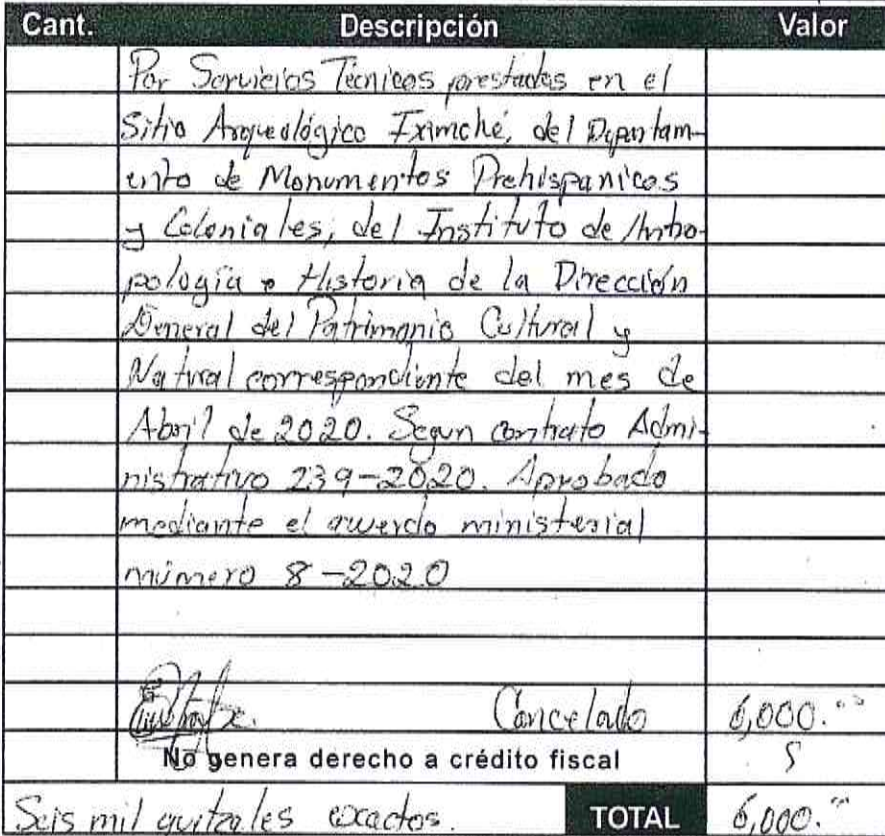 Cant. Descripción Valor
Por Servicios Técnicos prestados en el
Sitio Arqueológico Iximché, del Departam-
ento de Monumentos Prehispanicos
y Coloniales, del Instituto de Antro-
pología e Historia de la Dirección
General del Patrimonio Cultural y
Natural correspondiente del mes de
Abril de 2020. Segun contrato Admi-
nistrativo 239-2020. Aprobado
mediante el acuerdo ministerial
número 8-2020
Cancelado 6,000.00
No genera derecho a crédito fiscal
Seis mil quitzales exactos. TOTAL 6,000.00